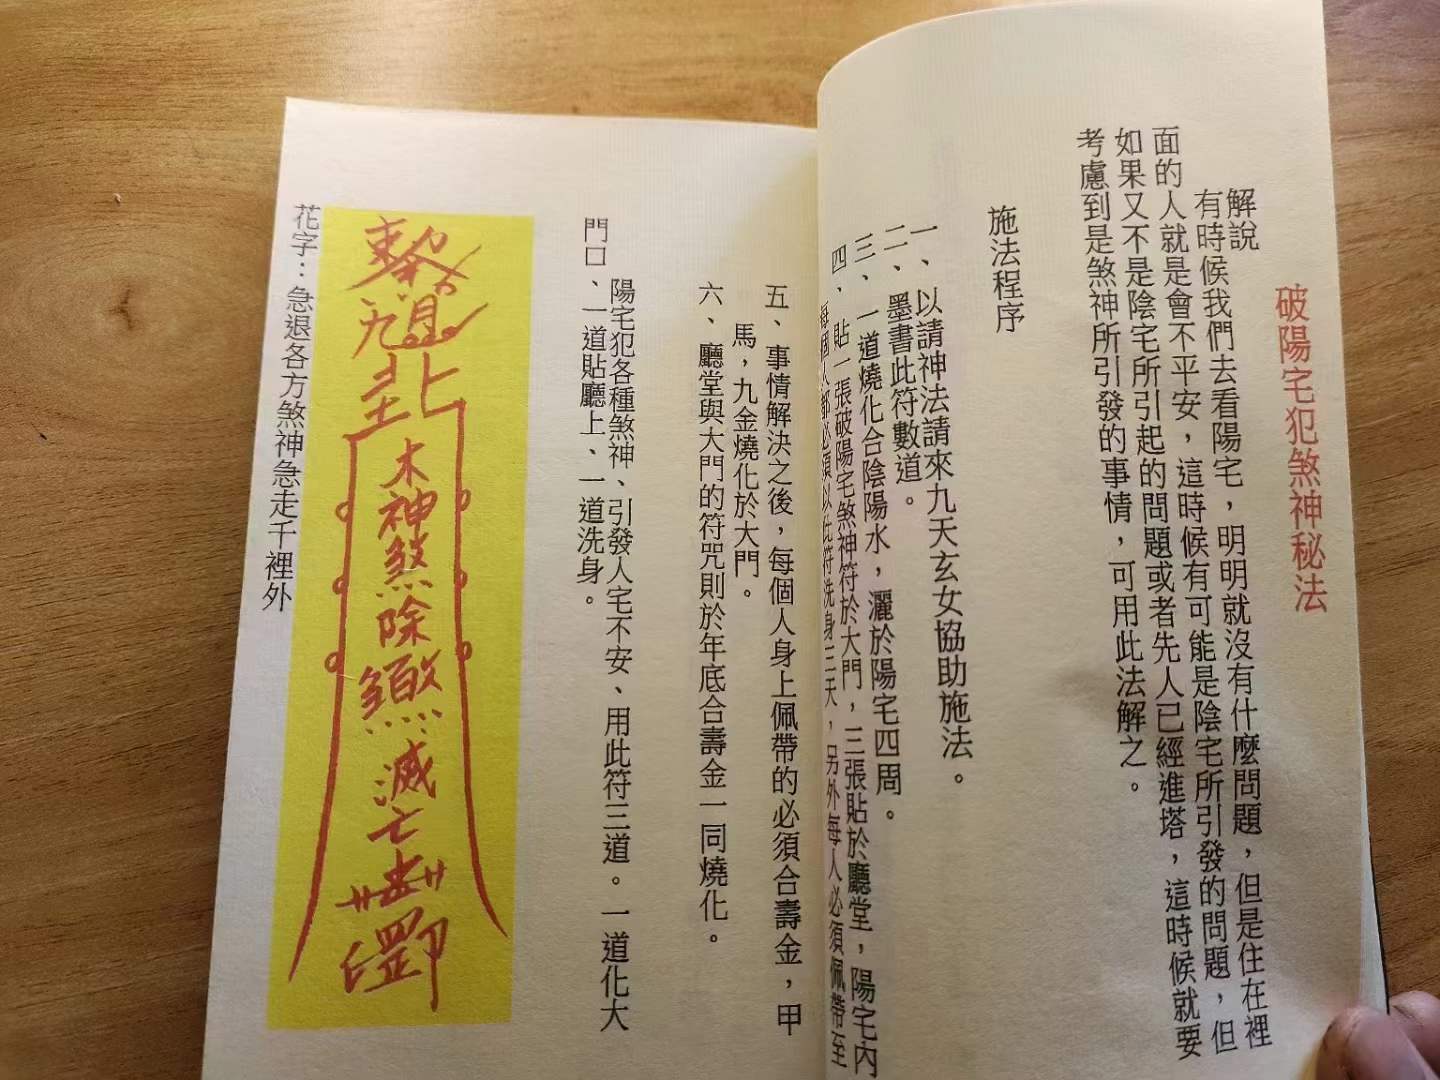 破陽宅犯煞神秘法
解說
有時候我們去看陽宅，明明就沒有什麼問題，但是住在裡
面的人就是會不平安，這時候有可能是陰宅所引發的問題，但
如果又不是陰宅所引起的問題或者先人已經進塔，這時候就要
考慮到是煞神所引發的事情，可用此法解之。
施法程序
一、以請神法請來九天玄女協助施法。
二、墨書此符數道。
三、一道燒化合陰陽水，灑於陽宅四周。
四、貼一張破陽宅煞神符於大門，三張貼於廳堂，陽宅內
每個人都必須以此符洗身三天，另外每人必須佩帶至
五、事情解決之後，每個人身上佩帶的必須合壽金，甲
馬，九金燒化於大門。
六、廳堂與大門的符咒則於年底合壽金一同燒化。
陽宅犯各種煞神、引發人宅不安、用此符三道。一道化大
門口、一道貼廳上、一道洗身。
木神煞除
滅亡
花字：急退各方煞神急走千裡外